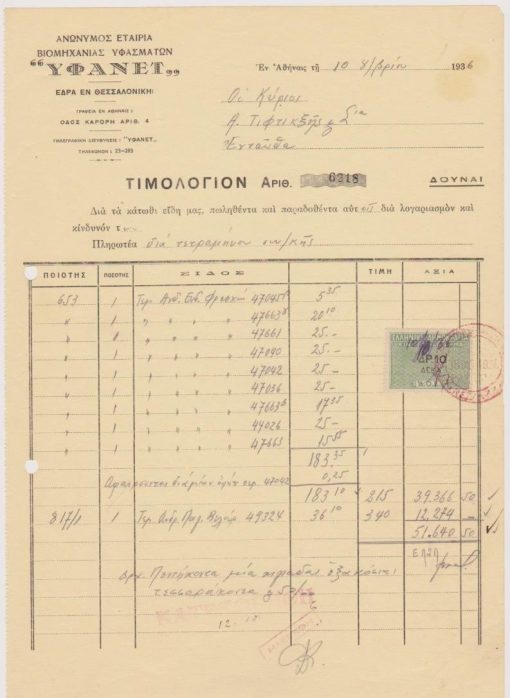 ΑΝΩΝΥΜΟΣ ΕΤΑΙΡΙΑ
ΒΙΟΜΗΧΑΝΙΑΣ ΥΦΑΣΜΑΤΩΝ
“ΥΦΑΝΕΤ„
ΕΔΡΑ ΕΝ ΘΕΣΣΑΛΟΝΙΚΗι
ΓΡΑΦΕΙΑ ΕΝ ΑΘΗΝΑΙΣ :
ΟΔΟΣ ΚΑΡΟΡΗ ΑΡΙΘ. 4
ΤΗΛΕΓΡΑΦΙΚΗ ΔΙΕΥΘΥΝΣΙΣ : "ΥΦΑΝΕΤ„
ΤΗΛΕΦΩΝΟΝ : 23-285
Ἐν Ἀθήναις τῇ 10 8/βρίου 1936
Οἱ Κύριοι
Α. Τιφτικζῆς & Σία
Ἐνταῦθα
ΤΙΜΟΛΟΓΙΟΝ ΑΡΙΘ. 6218 ΔΟΥΝΑΙ
Διὰ τὰ κάτωθι εἴδη μας, πωληθέντα καὶ παραδοθέντα αὐτοῖς διὰ λογαριασμὸν καὶ
κίνδυνόν τ
Πληρωτέα διὰ τετραμήνου συν/κῆς
ΠΟΙΟΤΗΣ ΠΟΣΟΤΗΣ ΕΙΔΟΣ ΤΙΜΗ ΑΞΙΑ
653 1 Τεμ. 47045 5 35
" 1 " " " " 47663 20 10
" 1 " " " " 47661 25 -
" 1 " " " " 47040 25 -
" 1 " " " " 47042 25 -
" 1 " " " " 47036 25 -
" 1 " " " " 47663 17 35
" 1 " " " " 44026 25 -
" 1 " " " " 47665 15 55
183 35
Ἀφαιροῦνται τεμ. 47042 0,25
183 10 215 39.366 50
817/1 1 Τεμ. 49324 36 10 340 12,274 -
51.640 50
ΕΛΛΗΝΙΚΗ
ΔΡ.10
ΔΕΚΑ
Δρχ. Πεντήκοντα μία χιλιάδας ἑξακοσίας
τεσσαράκοντα & 50/
12.10